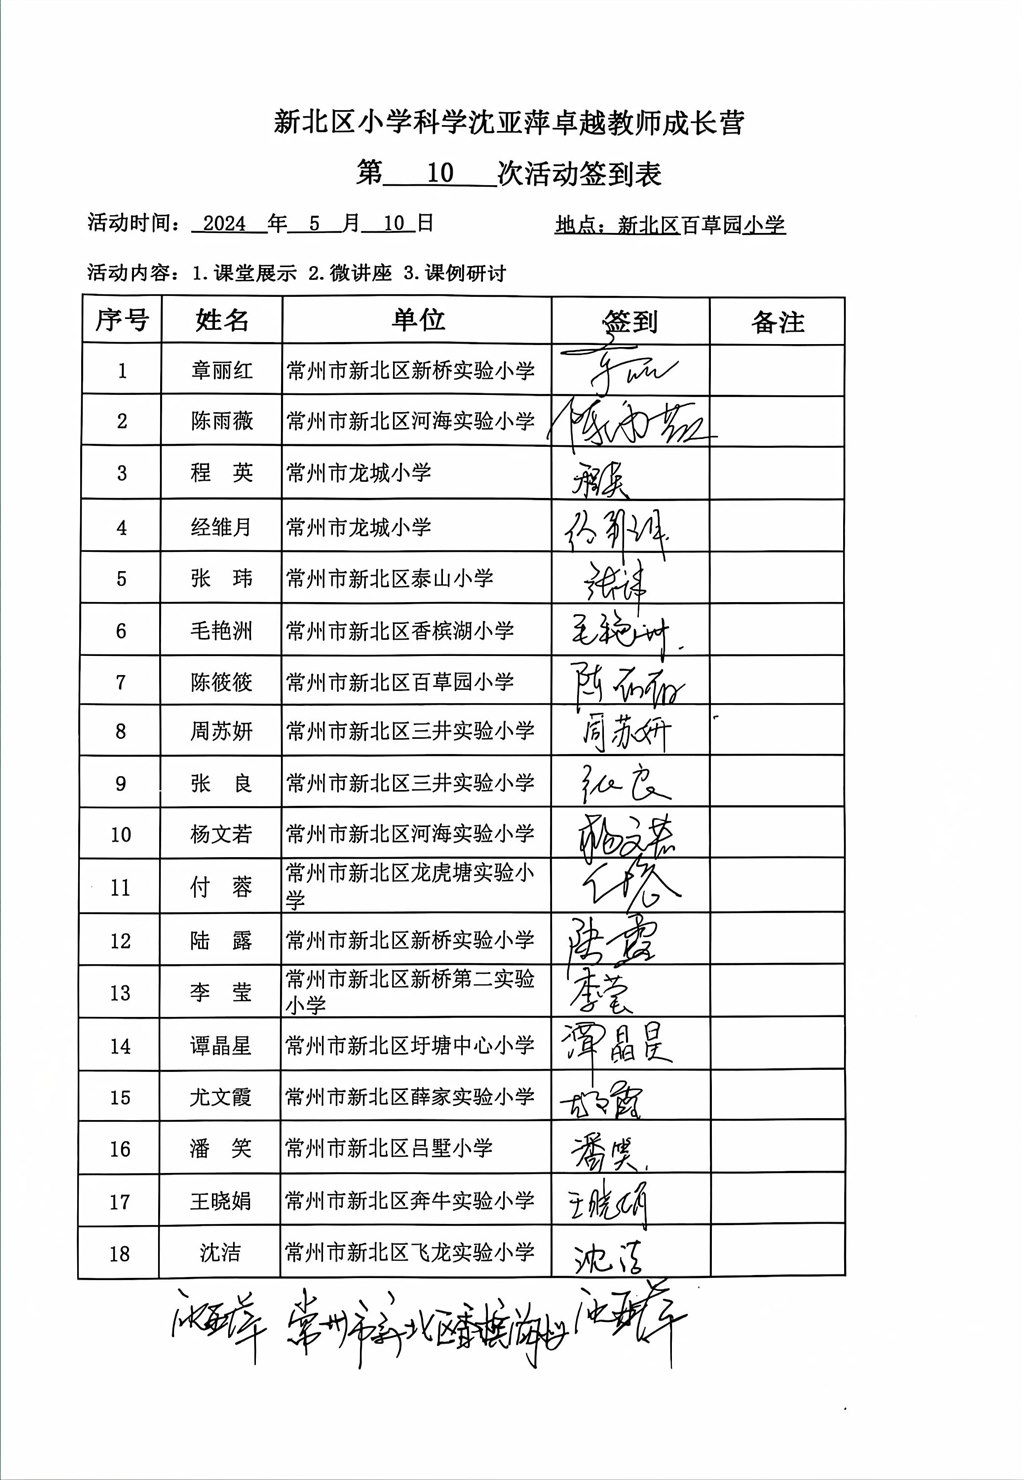 新北区小学科学沈亚萍卓越教师成长营
第 10 次活动签到表
活动时间： 2024 年 5 月 10 日 地点：新北区百草园小学
活动内容：1.课堂展示 2.微讲座 3.课例研讨
序号 姓名 单位 签到 备注
1 章丽红 常州市新北区新桥实验小学 章丽红
2 陈雨薇 常州市新北区河海实验小学 陈雨薇
3 程 英 常州市龙城小学 程英
4 经雏月 常州市龙城小学
5 张 玮 常州市新北区泰山小学 张玮
6 毛艳洲 常州市新北区香槟湖小学 毛艳洲
7 陈筱筱 常州市新北区百草园小学 陈筱筱
8 周苏妍 常州市新北区三井实验小学 周苏妍
9 张 良 常州市新北区三井实验小学 张良
10 杨文若 常州市新北区河海实验小学 杨文若
11 付 蓉 常州市新北区龙虎塘实验小
学 付蓉
12 陆 露 常州市新北区新桥实验小学 陆露
13 李 莹 常州市新北区新桥第二实验
小学 李莹
14 谭晶星 常州市新北区圩塘中心小学 谭晶星
15 尤文霞 常州市新北区薛家实验小学 尤文霞
16 潘 笑 常州市新北区吕墅小学 潘笑
17 王晓娟 常州市新北区奔牛实验小学 王晓娟
18 沈洁 常州市新北区飞龙实验小学 沈洁
沈亚萍 常州市新北区香槟湖小学 沈亚萍